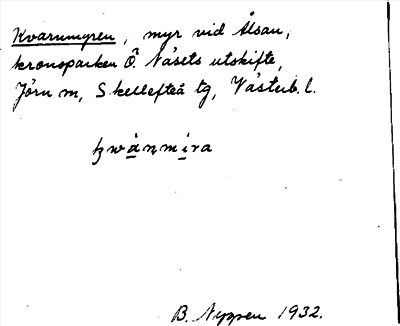 Kvarnmyren, myr vid Ålsån,
kronoparken Ö. Näsets utskifte,
Jörn sn, Skellefteå tg, Västerb. l.
ʞwànmira
B. Nyzzen 1932.